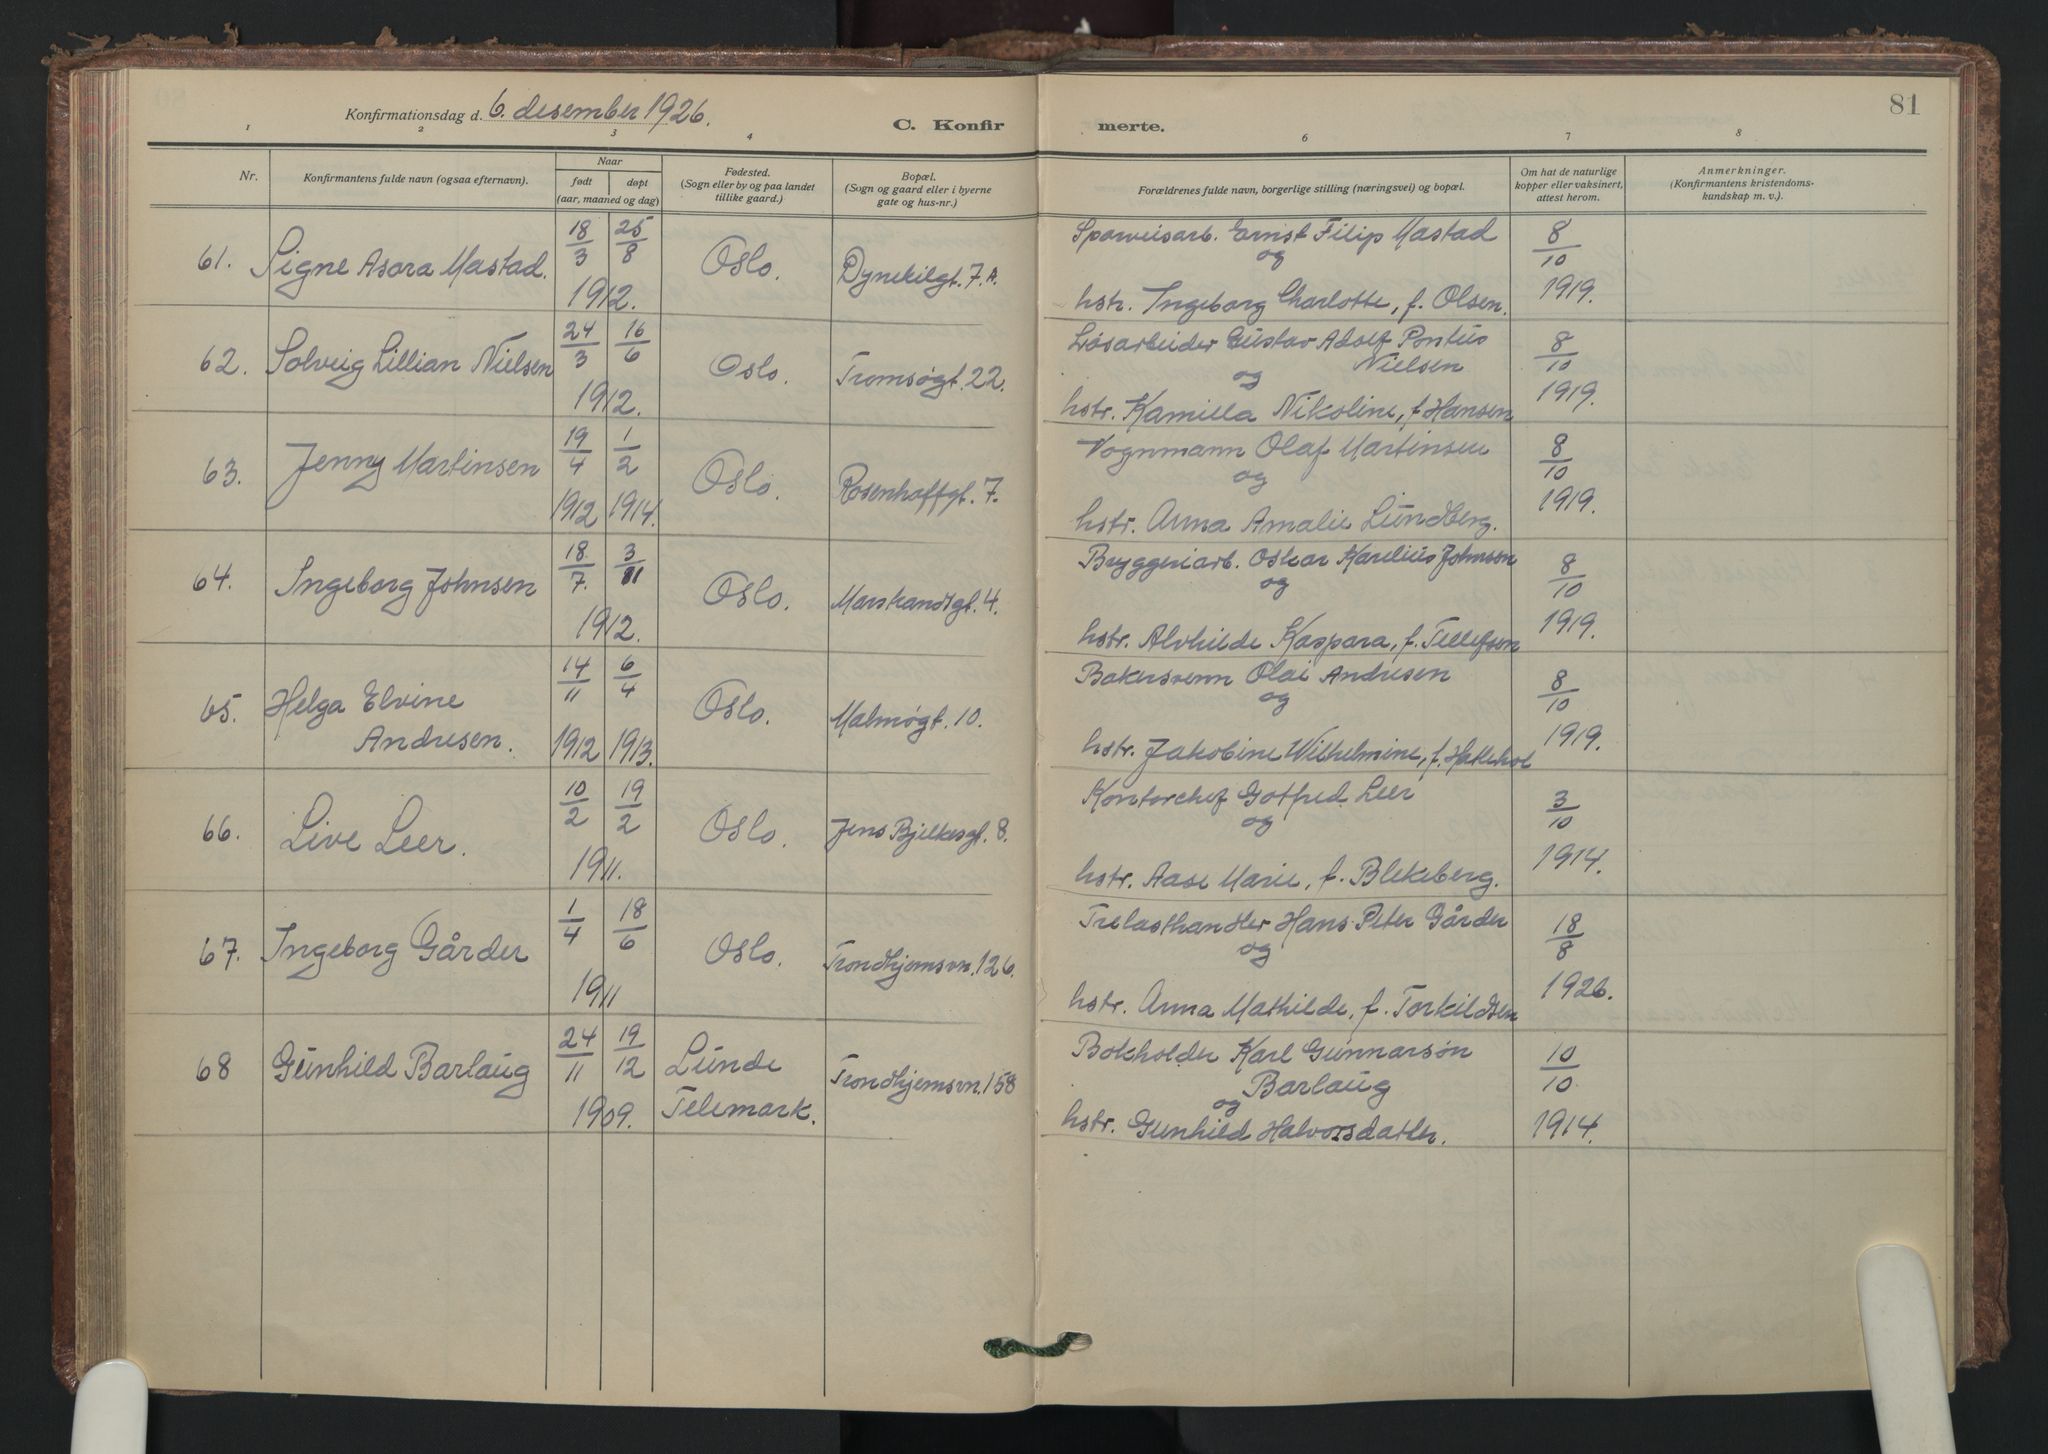 81
Konfirmationsdag d. 6. desember 1926.
C. Konfirmerte.
1 2 3 4 6 7 8
Nr.
Konfirmantens fulde navn (ogsaa efternavn).
Naar
født døpt
(aar, maaned og dag)
Fødested.
(Sogn eller by og paa landet
tillike gaard.)
Bopæl.
(Sogn og gaard eller i byerne
gate og hus-nr.)
Forældrenes fulde navn, borgerlige stilling (næringsvei) og bopæl.
Om hat de naturlige
kopper eller vaksinert,
attest herom.
Anmerkninger.
(Konfirmantens kristendoms-
kundskap m. v.).
61. Signe Asora Mastad. 18/3 25/8 1912. Oslo. Dynekilgt. 7.A.
Sporveisarb. Ernst Filip Mastad
og
hstr. Ingeborg Charlotte, f. Olsen.
8/10 1919.
62. Solveig Lillian Nielsen 24/3 16/6 1912. Oslo. Tromsøgt. 22.
Løsarbeider Gustav Adolf Pontus
Nielsen
og
hstr. Kamilla Nikoline, f. Hansen
8/10 1919.
63. Jenny Martinsen 19/4 1912 1/2 1914. Oslo. Rosenhoffgt. 7.
Vognmann Olaf Martinsen
og
hstr. Anna Amalie Lundberg.
8/10 1919.
64. Ingeborg Johnsen 18/7. 3/11 1912. Oslo. Markandsgt. 4.
Bryggeriarb. Oskar Karelius Johnsen
og
hstr. Alvhilde Kaspara, f. Tellefsen
8/10 1919.
65. Helga Elvine
Andresen. 14/11 1912 6/4 1913. Oslo. Malmøgt. 10.
Bakersvenn Olai Andresen
og
hstr. Jakobine Wilhelmine, f.
8/10 1919.
66. Live Leer. 10/2 19/2 1911. Oslo. Jens Bjelkesgt. 8.
Kontorchef Gotfred Leer
og
hstr. Aase Marie, f. Blekeberg.
3/10 1914.
67. Ingeborg Gårder 1/4 18/6 1911 Oslo. Trondhjemsvn. 126.
Trelasthandler Hans Peter Gårder
og
hstr. Anna Mathilde, f. Torkildsen
18/8 1926.
68 Gunhild Barlaug 24/11 19/12 1909. Lunde
Telemark. Trondhjemsvn. 158
Bokholder Karl Gunnarsøn
Barlaug
og
hstr. Gunhild Halvorsdatter.
10/10 1914.